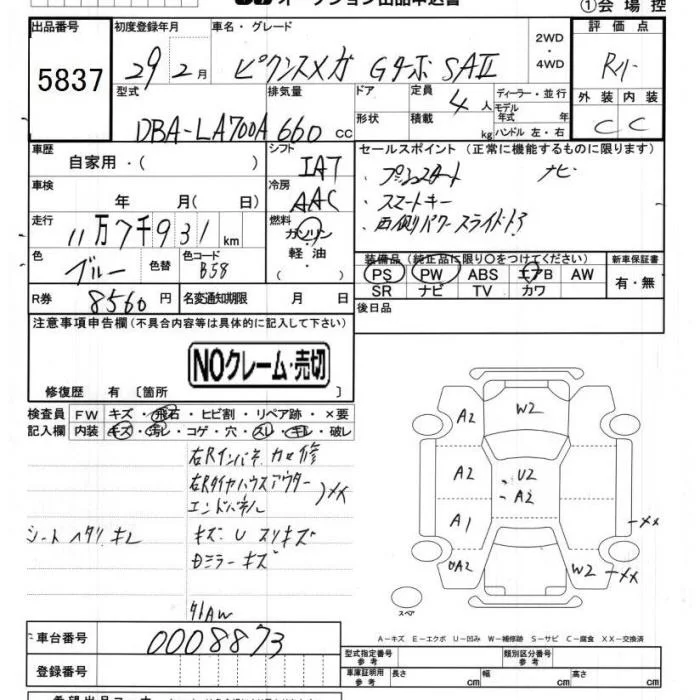 オークション出品申込書
①会場控
出品番号
5837
初度登録年月
29 2月
車名・グレード
ピクシスメガ Gターボ SAⅡ
2WD
・
4WD
評価点
R
型式
DBA-LA700A
排気量
660 cc
ドア
形状
定員
4人
積載
kg
ディーラー・並行
モデル
年式 年
ハンドル 左・右
外装 内装
C C
車歴
自家用・( )
シフト
IAT
車検
年 月( 日)
冷房
AAC
走行
11万7千931km
燃料
ガソリン
軽油
( )
色
ブルー
色替
色コード
B58
R券
8560円
名変通知期限 月 日
セールスポイント (正常に機能するものに限ります)
・プッシュスタート ナビ
・スマートキー
・両側パワースライドドア
装備品(純正品に限り○をつけてください)
PS PW ABS エアB AW
SR ナビ TV カワ
新車保証書
有・無
後日品
注意事項申告欄(不具合内容等は具体的に記入して下さい)
NOクレーム・売切
修復歴 有〔箇所 〕
検査員
記入欄
FW キズ・飛石・ヒビ割・リペア跡・×要
内装 キズ・汚レ・コゲ・穴・スレ・キレ・破レ
右Rインパネ カロ修
右Rタイヤハウスアウター
エンドパネル
)XX
シート ヘタリ キレ
キズ U スリキズ
Dミラーキズ
社AW
A2
W2
A2
U2
A2
A1
XX
UA2
W2
XX
スペア
A−キズ E−エクボ U−凹み W−補修跡 S−サビ C−腐食 XX−交換済
車台番号
0008873
登録番号
型式指定番号
参考
類別区分番号
参考
車庫証明用
参考
長さ 幅 高さ